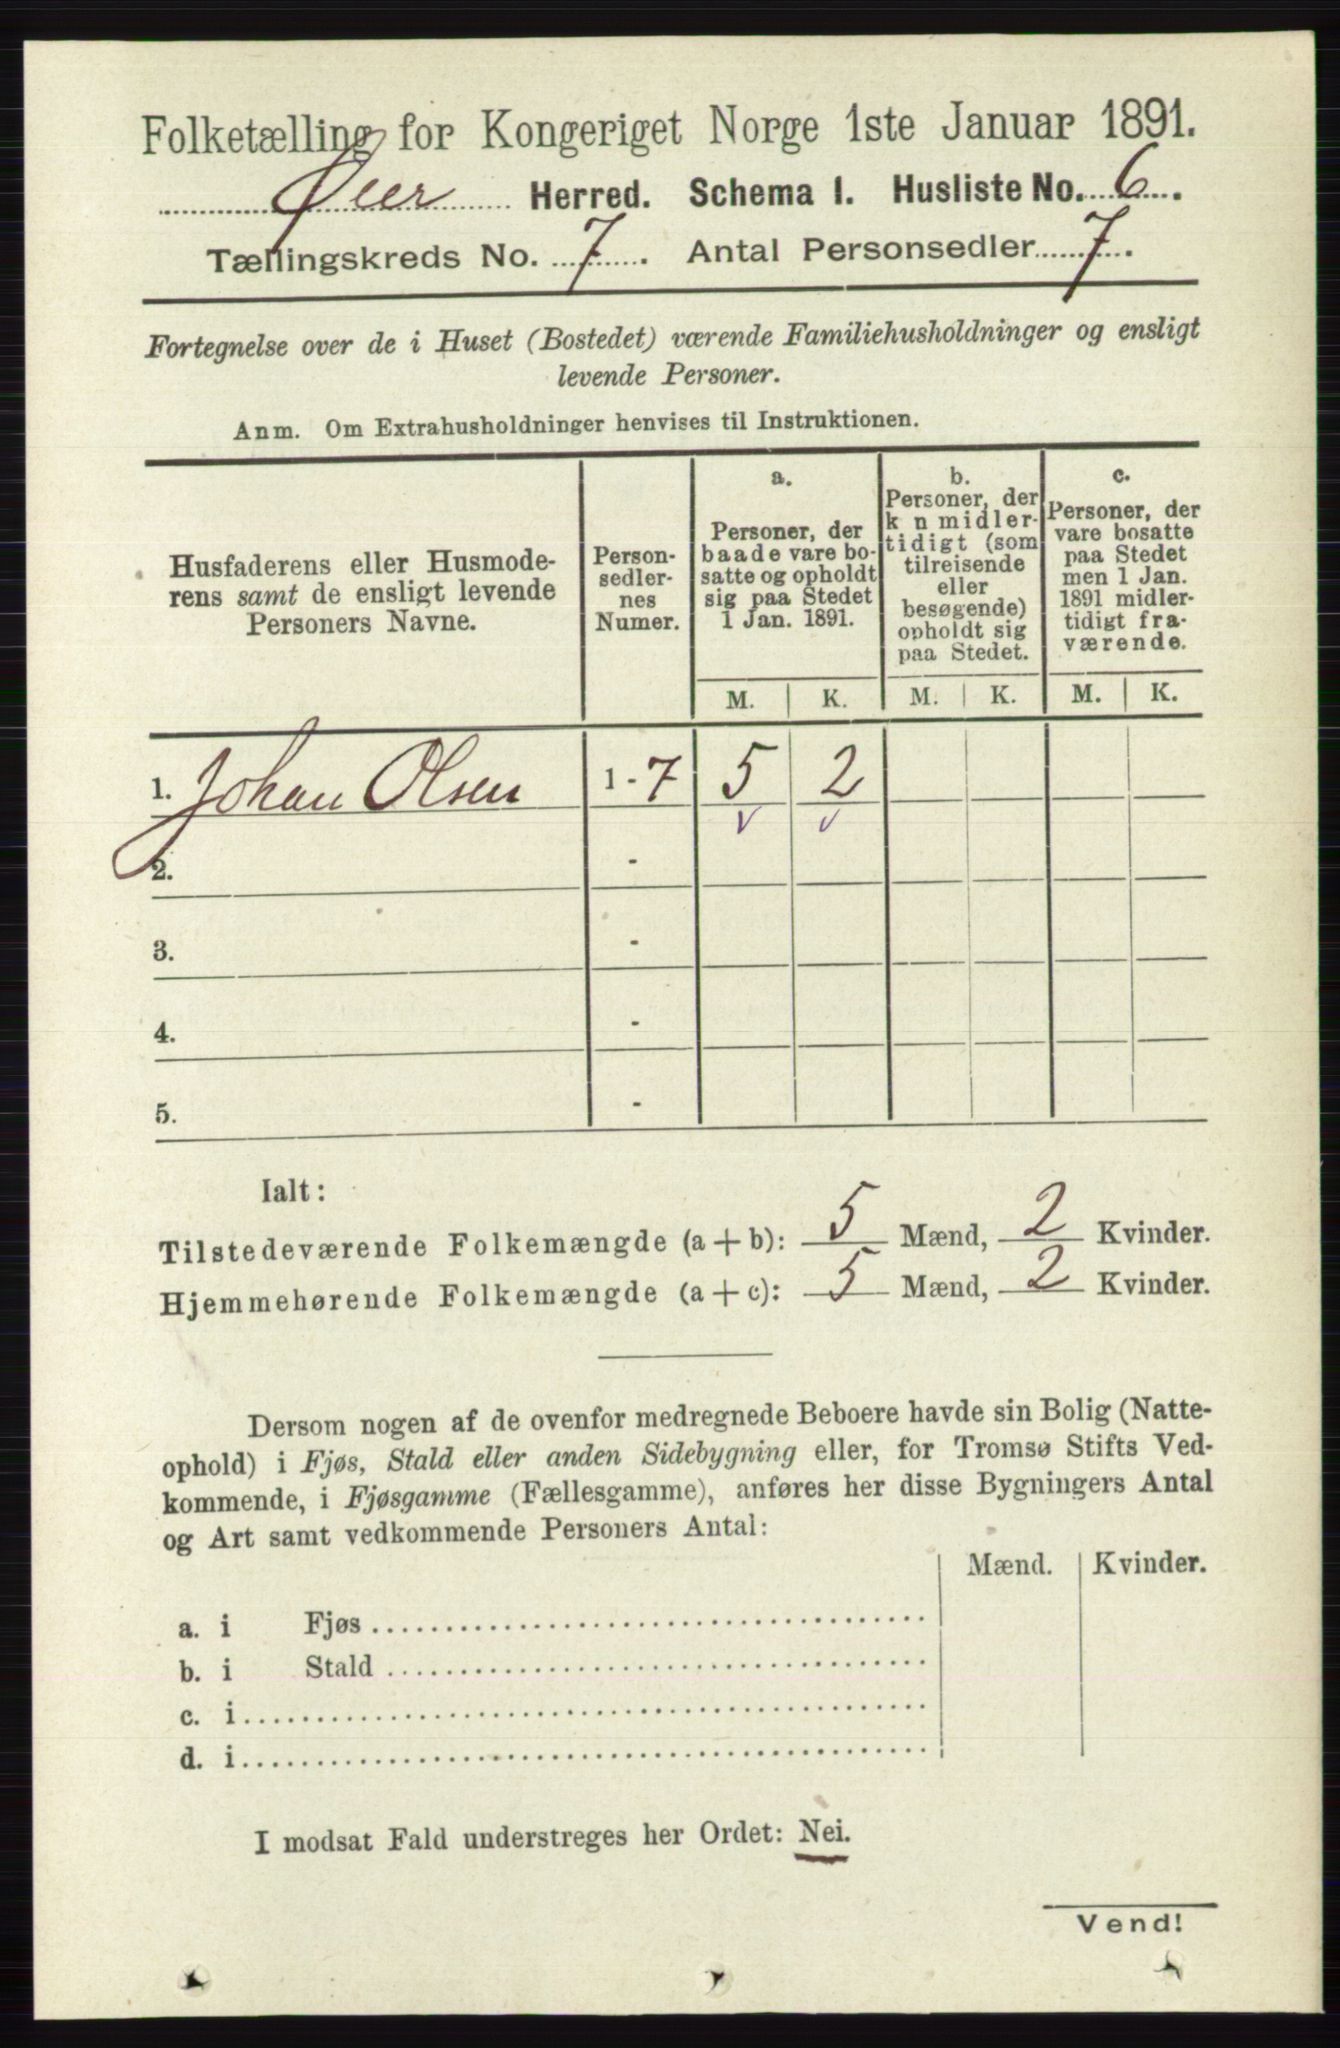 Folketælling for Kongeriget Norge 1ste Januar 1891.
Øier Herred. Schema 1. Husliste No. 6.
Tællingskreds No. 7. Antal Personsedler 7.
Fortegnelse over de i Huset (Bostedet) værende Familiehusholdninger og ensligt
levende Personer.
Anm. Om Extrahusholdninger henvises til Instruktionen.
Husfaderens eller Husmode-
rens samt de ensligt levende
Personers Navne.
Person-
sedler-
nes
Numer.
a.
Personer, der
baade vare bo-
satte og opholdt
sig paa Stedet
1 Jan. 1891.
b.
Personer, der
k n midler-
tidigt (som
tilreisende
eller
besøgende)
opholdt sig
paa Stedet.
c.
Personer, der
vare bosatte
paa Stedet
men 1 Jan.
1891 midler-
tidigt fra-
værende.
M. K. M. K. M. K.
1. Johan Olsen 1 - 7 5 2
v v
2. -
3. -
4. -
5. -
Ialt:
Tilstedeværende Folkemængde (a+b): 5 Mænd, 2 Kvinder.
Hjemmehørende Folkemængde (a+c): 5 Mænd, 2 Kvinder.
Dersom nogen af de ovenfor medregnede Beboere havde sin Bolig (Natte-
ophold) i Fjøs, Stald eller anden Sidebygning eller, for Tromsø Stifts Ved-
kommende, i Fjøsgamme (Fællesgamme), anføres her disse Bygningers Antal
og Art samt vedkommende Personers Antal:
Mænd. Kvinder.
a. i Fjøs
b. i Stald
c. i
d. i
I modsat Fald understreges her Ordet: Nei.
Vend!